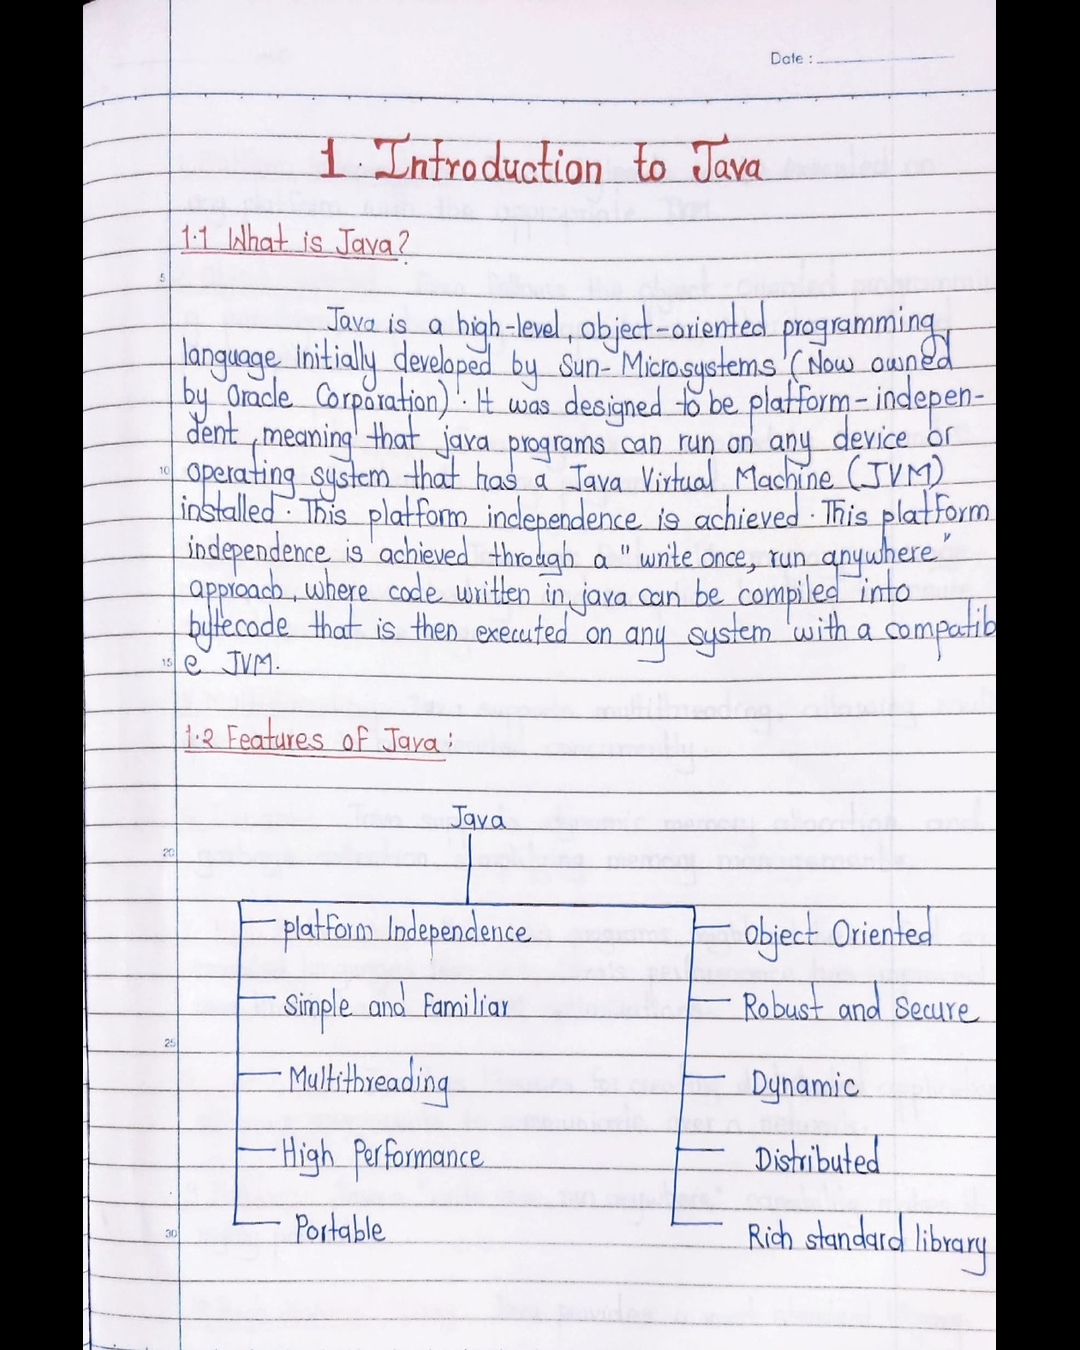 Date :
1. Introduction to Java
1.1 What is Java?
5
Java is a high-level, object-oriented programming
language initially developed by Sun-Microsystems (Now owned
by Oracle Corporation). It was designed to be platform-indepen-
dent, meaning that java programs can run on any device or
10 operating system that has a Java Virtual Machine (JVM)
installed. This platform independence is achieved. This platform
independence is achieved through a "write once, run anywhere"
approach, where code written in java can be compiled into
bytecode that is then executed on any system with a compatib
15 e JVM.
1.2 Features of Java:
Java
20
platform Independence Object Oriented
Simple and Familiar Robust and Secure
25
Multithreading Dynamic
High Performance Distributed
30 Portable Rich standard library